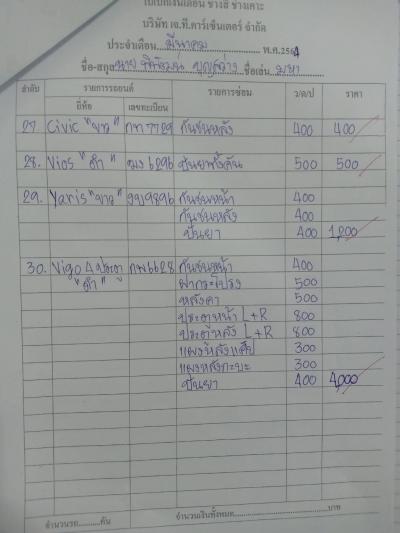 ใบเบิกเงินเดือน ช่างสี ช่างเคาะ
บริษัท เจ.ที.คาร์เซ็นเตอร์ จำกัด
ประจำเดือน....มีนาคม....พ.ศ.2564
ชื่อ-สกุล นาย พิพัฒน์ บุญสว่าง ชื่อเล่น มยา
ลำดับ รายการรถยนต์ รายการซ่อม ว/ด/ป ราคา
ยี่ห้อ เลขทะเบียน
27. Civic "ขาว" กท 7729 กันชนหลัง 400 400
28. Vios "ดำ" 6296 ปั่นยาทั้งคัน 500 500
29. Yaris "ขาว" 9896 กันชนหน้า 400
กันชนหลัง 400
ปั่นยา 400 1,200
30. Vigo 4 ประตู 6628 กันชนหน้า 400
"ดำ" ฝากระโปรง 500
หลังคา 500
ประตูหน้า L+R 800
ประตูหลัง L+R 800
แผงหลังแค็ป 300
แผงหลังกะบะ 300
ปั่นยา 400 4,000
จำนวนรถ..........คัน จำนวนเงินทั้งหมด..............................บาท